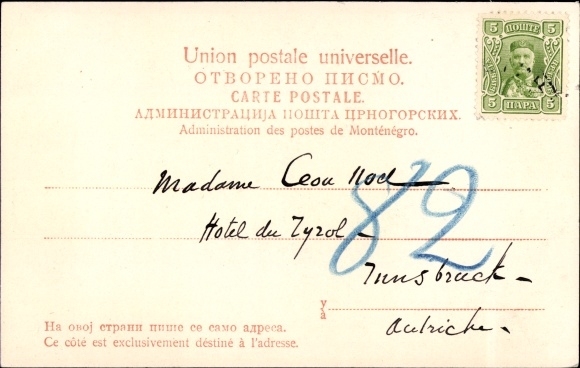 5 ПОШТЕ 5
5 ПАРА 5
Union postale universelle.
ОТВОРЕНО ПИСМО.
CARTE POSTALE.
АДМИНИСТРАЦИЈА ПОШТА ЦРНОГОРСКИХ.
Administration des postes de Monténégro.
Madame
Hotel du Tyrol
82
Innsbruck
у
à
Autriche
На овој страни пише се само адреса.
Ce côté est exclusivement déstiné à l'adresse.